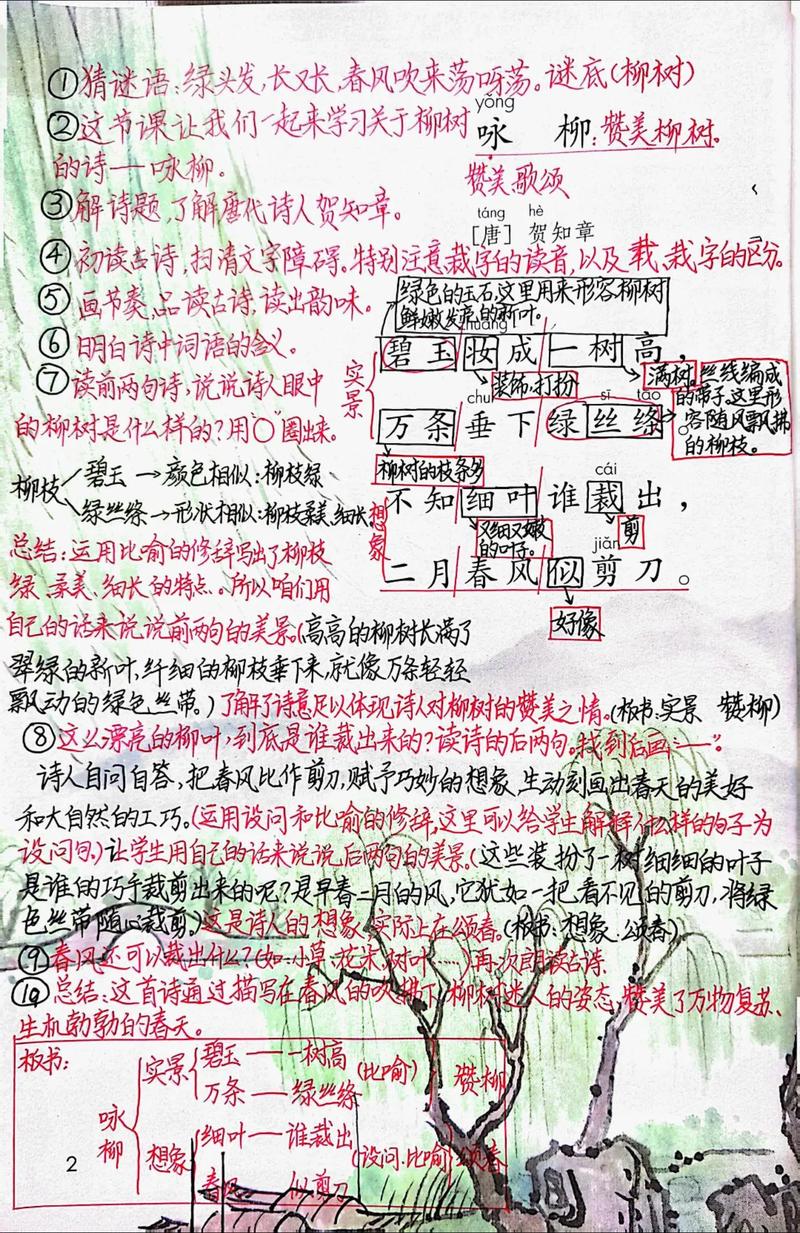 ①猜谜语:绿头发,长又长,春风吹来荡呀荡。谜底(柳树)
yǒng
②这节课让我们一起来学习关于柳树
咏 柳:赞美柳树。
的诗——咏柳。
赞美歌颂
③解诗题,了解唐代诗人贺知章。
táng hè
[唐] 贺知章
④初读古诗,扫清文字障碍。特别注意裁字的读音,以及载、栽字的区分。
⑤画节奏,品读古诗,读出韵味。
绿色的玉石,这里用来形容柳树
鲜嫩发亮的新叶。
⑥明白诗中词语的含义。
zhuāng
碧玉妆成一树高,
装饰,打扮
满树。
⑦读前两句诗,说说诗人眼中
的柳树是什么样的?用"○"圈出来。
实景
chuí sī tāo
万条垂下绿丝绦
丝线编成
的带子,这里形
容随风飘拂
的柳枝。
柳树的枝条多
柳枝
碧玉→颜色相似:柳枝绿
绿丝绦→形状相似:柳枝柔美、细长
想象
cái
不知细叶谁裁出,
又细又嫩
的叶子。
剪
jiǎn
二月春风似剪刀。
好像
总结:运用比喻的修辞写出了柳枝
绿、柔美、细长的特点。所以咱们用
自己的话来说说前两句的美景。(高高的柳树长满了
翠绿的新叶,纤细的柳枝垂下来,就像万条轻轻
飘动的绿色丝带。)了解了诗意足以体现诗人对柳树的赞美之情。(板书:实景 赞柳)
⑧这么漂亮的柳叶,到底是谁裁出来的?读诗的后两句。找到后画"——"。
诗人自问自答,把春风比作剪刀,赋予巧妙的想象,生动刻画出春天的美好
和大自然的工巧。(运用设问和比喻的修辞,这里可以给学生解释什么样的句子为
设问句。)让学生用自己的话来说说,后两句的美景。(这些装扮了一树细细的叶子
是谁的巧手裁剪出来的呢?是早春二月的风,它犹如一把看不见的剪刀,将绿
色丝带随心裁剪。)这是诗人的想象,实际上在颂春。(板书:想象 颂春)
⑨春风还可以裁出什么?(如:小草、花朵、树叶……)再次朗读古诗.
⑩总结:这首诗通过描写在春风的吹拂下,柳树迷人的姿态,赞美了万物复苏、
生机勃勃的春天。
板书:
咏柳
实景
碧玉——一树高
万条——绿丝绦
(比喻)
赞柳
想象
细叶——谁裁出
春风 似剪刀
(设问.比喻)
颂春
2